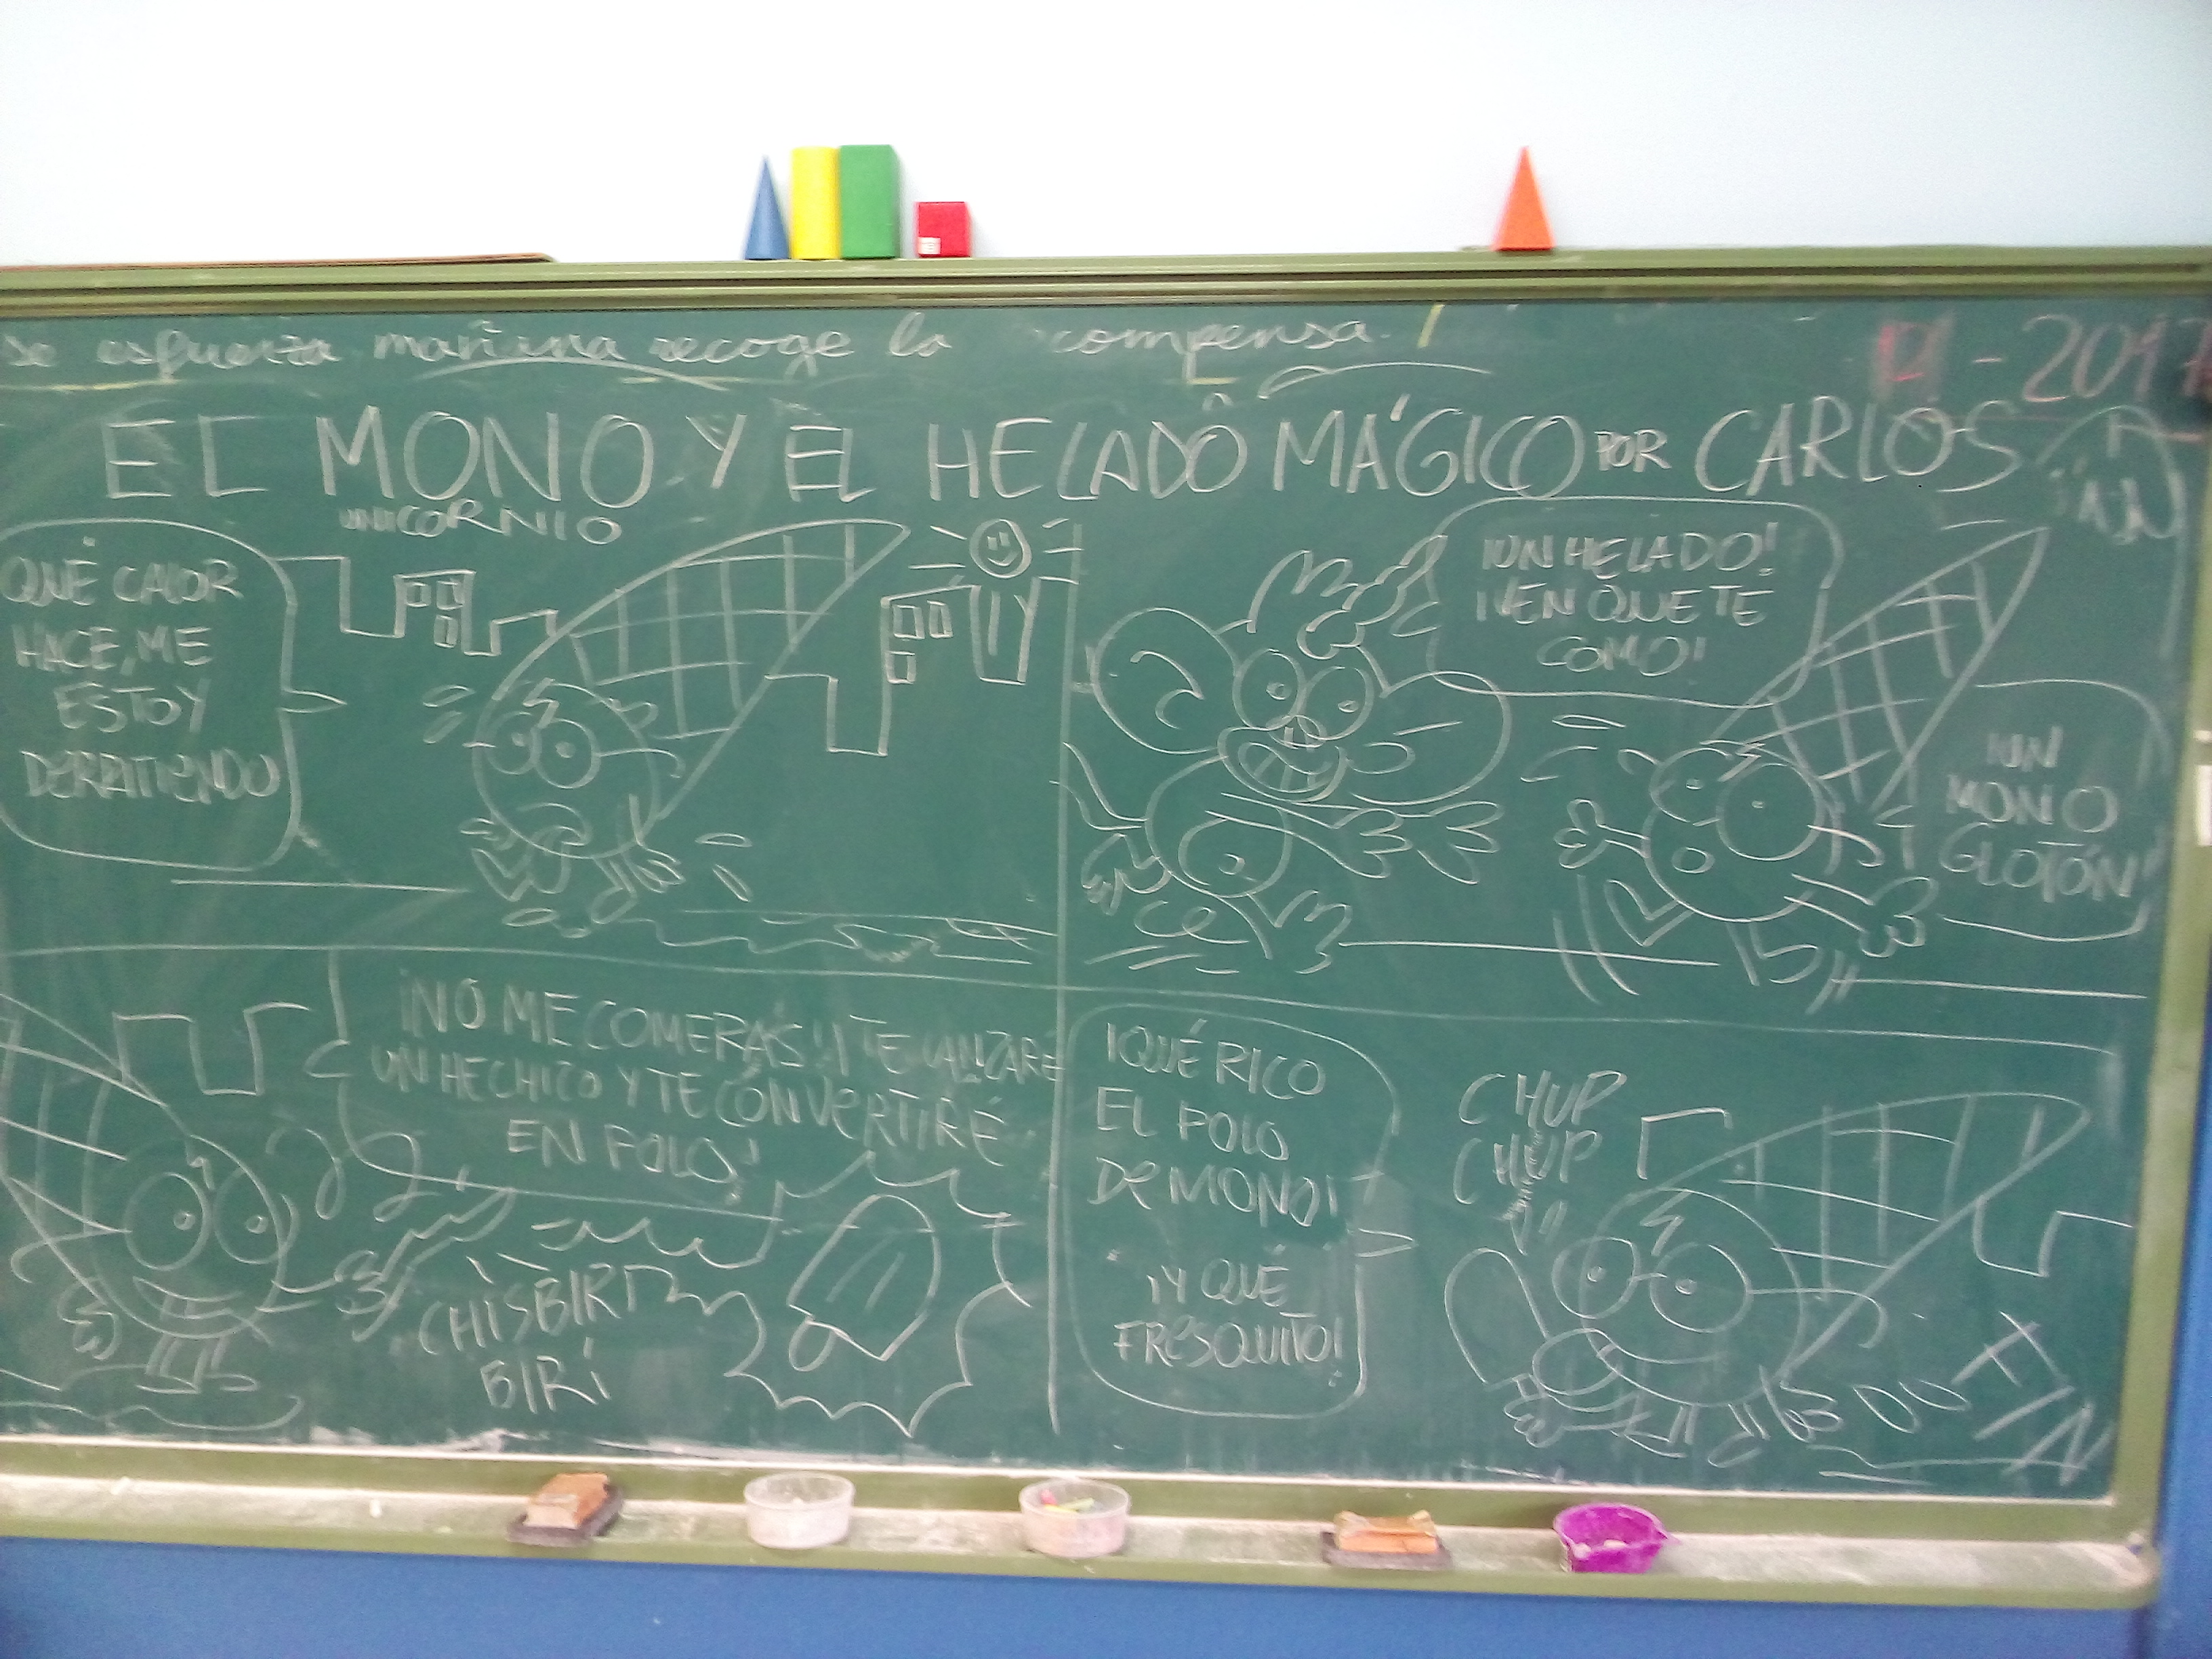 se esfuerza mañana recoge la compensa.
- 2017
EL MONO Y EL HELADO MÁGICO POR CARLOS
UNICORNIO
QUÉ CALOR
HACE, ME
ESTOY
DERRITIENDO
¡UN HELADO!
¡VEN QUE TE
COMO!
¡UN
MONO
GLOTÓN!
¡NO ME COMERÁS! ¡TE LANZARÉ
UN HECHIZO Y TE CONVERTIRÉ
EN POLO!
CHISBIRI
BIRI
¡QUÉ RICO
EL POLO
DE MONO!
¡Y QUÉ
FRESQUITO!
CHUP
CHUP
FIN